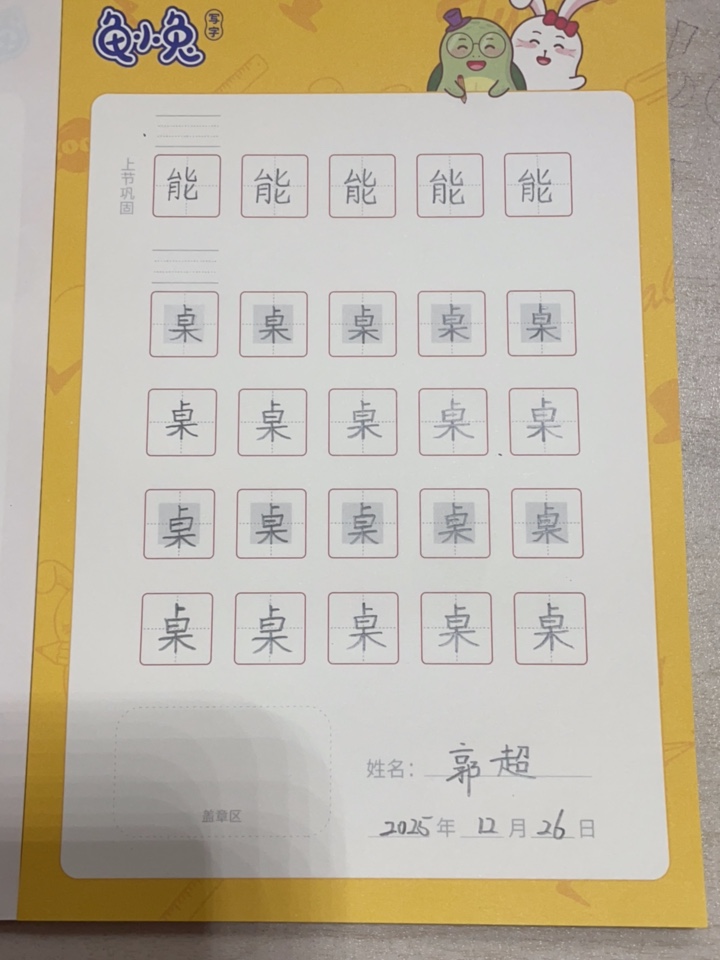 龟小兔
写字
上节巩固
能 能 能 能 能
桌 桌 桌 桌 桌
桌 桌 桌 桌 桌
桌 桌 桌 桌 桌
桌 桌 桌 桌 桌
姓名: 郭超
盖章区
2025年 12月26日